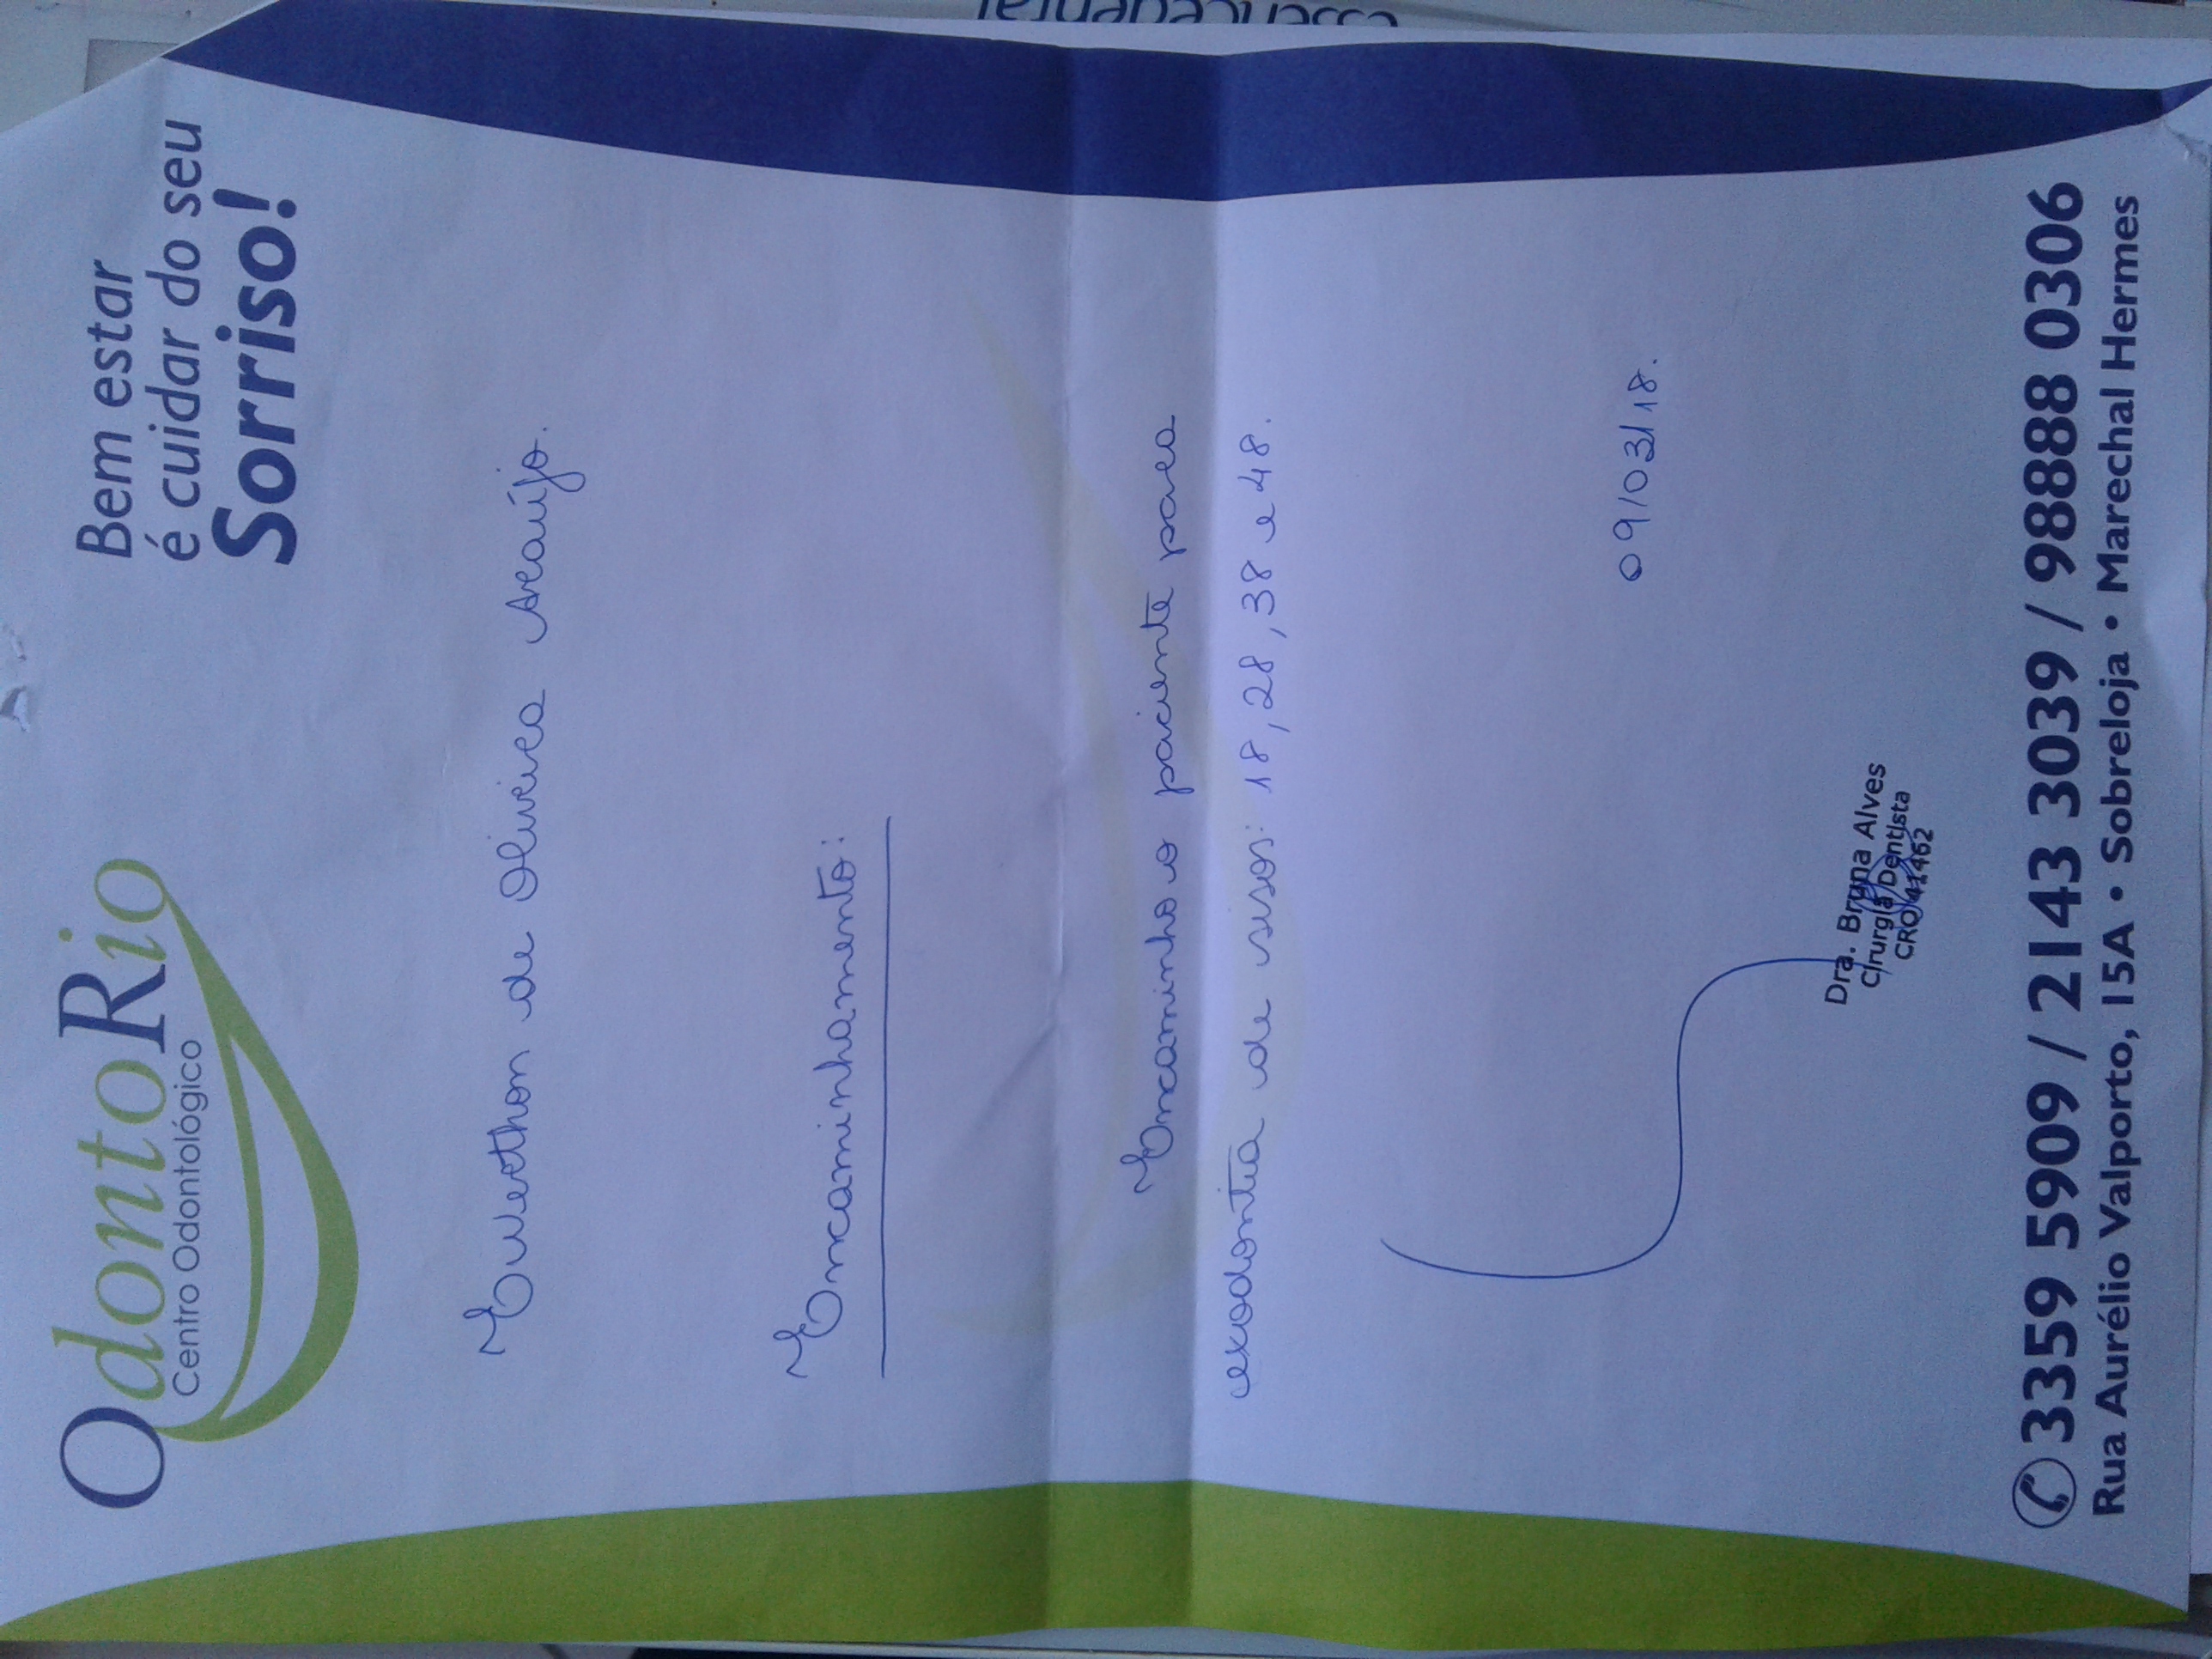 OdontoRio
Centro Odontológico
Bem estar
é cuidar do seu
Sorriso!
Ewerthon de Oliveira Araújo.
Encaminhamento:
Encaminho o paciente para
exodontia de sisos: 18, 28, 38 e 48.
09/03/18.
Dra. Bruna Alves
Cirurgiã Dentista
CRO 41462
3359 5909 / 2143 3039 / 98888 0306
Rua Aurélio Valporto, 15A • Sobreloja • Marechal Hermes
essencedental